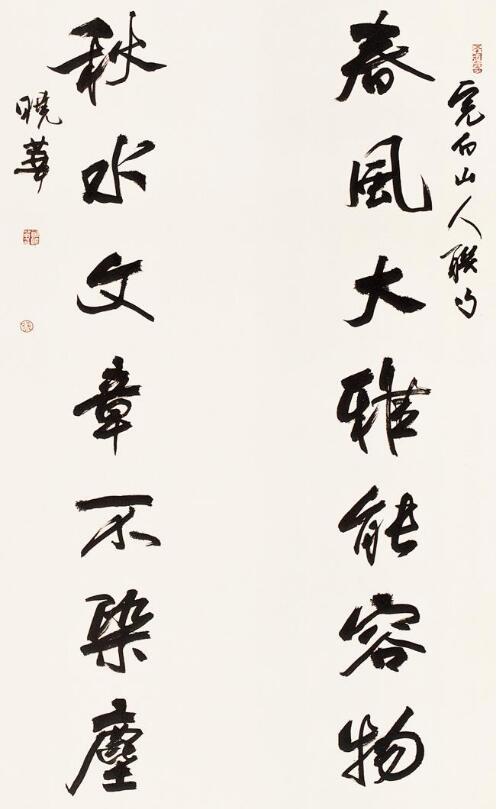 完白山人联句
春風大雅能容物
秋水文章不染塵
曉華